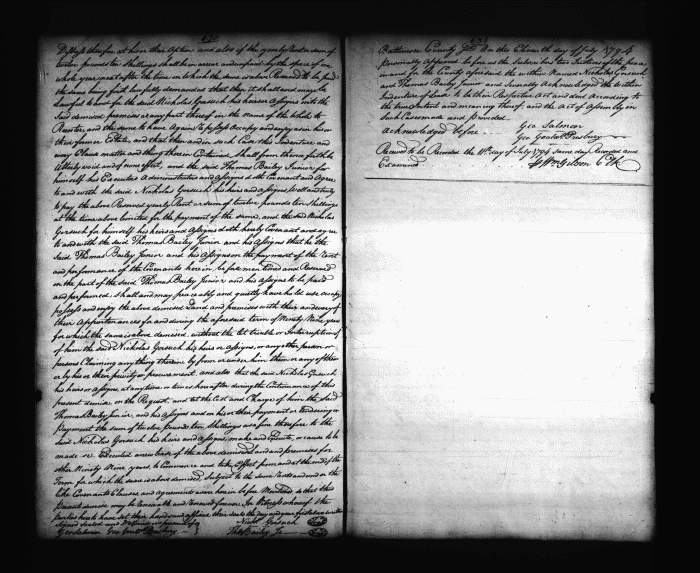 Distress therefor at his or their Option and also if the yearly Rent or sum of
twelve pounds ten Shillings shall be in arrear and unpaid by the space of one
whole year next after the time on which the same is above Reserved to be paid
the same being first lawfully demanded that then it shall and may be
Lawful to and for the said Nicholas Gorsuch his heirs or Assigns into the
Said demised premises or any part thereof in the name of the whole to
Reenter and the same to have Again Repossess Occupy and enjoy as in his or
their former Estate, and that then and in such Case this Indenture and
every Clause matter and thing therein Contained Shall from thence forth be
Utterly void and of none effect and the said Thomas Bailey Junior for
himself his Executors Administrators and Assigns doth Covenant and Agree
to and with the said Nicholas Gorsuch his heirs and Assigns well and truly
to pay the above Reserved yearly Rent or sum of twelve pounds ten Shillings
at the time above limited for the payment of the same, and the said Nicholas
Gorsuch for himself his heirs and Assigns doth hereby Covenant and agree
to and with the said Thomas Bailey Junior and his Assigns that he the
Said Thomas Bailey Junior and his Assigns on the payment of the Rent
and performance of the Covenants herein before mentioned and Reserved
on the part of the said Thomas Bailey Junior and his Assigns to be paid
and performed Shall and may peaceably and quietly have hold use occupy
possess and enjoy the above demised Land and premises with their and every of
their Appurtenances for and during the aforesaid term of Ninety Nine years
for which the same is above demised, without the let trouble or Interruption of
of him the said Nicholas Gorsuch his heirs or Assigns, or any other person or
persons Claiming any thing therein by from or under him them or any of them
or by his or their privity or procurement, and also that the said Nicholas Gorsuch
his heirs or Assigns, at any time or times hereafter during the Continuance of this
present demise on the Request and at the Cost and Charge of him the Said
Thomas Bailey Junior, and his Assigns and on his or their payment or tendering
payment the sum of twelve pounds ten Shillings as a fine therefor to the
Said Nicholas Gorsuch his heirs and Assigns, make and Execute, or cause to be
made or Executed a new lease of the above demised land and premises for
other Ninety Nine years, to Commence and take Effect from and at the end of the
Term for which the same is above demised, Subject to the Same Rents and under the
like Covenants Clauses and Agreements as are herein before Mentioned so that this
present demise may be Renewable and Renewed forever In Witness whereof the
parties hereto have set their hands and affixed their seals the day and year first above written
Signed Sealed and Delivered in presence of
Nichs Gorsuch (Seal)
Geo Salmon Geo Gouldt Presbury
Thos Bailey Jr (Seal)
Baltimore County Sct On this Eleventh day of July 1794
personally Appeared before us the Subscribers two Justices of the peace
in and for the County aforesaid the within Named Nicholas Gorsuch
and Thomas Bailey Junior and Severally Acknowledged the Within
Indenture of Lease to be their Respective Act and deed According to
the true Intent and meaning thereof and the Act of Assembly in
Such Case made and provided.
Geo Salmon
Acknowledged before
Geo Gouldt Presbury
Received to be Recorded the 11th day of July 1794 same day Recorded and
Examined Wm Gibson Clk